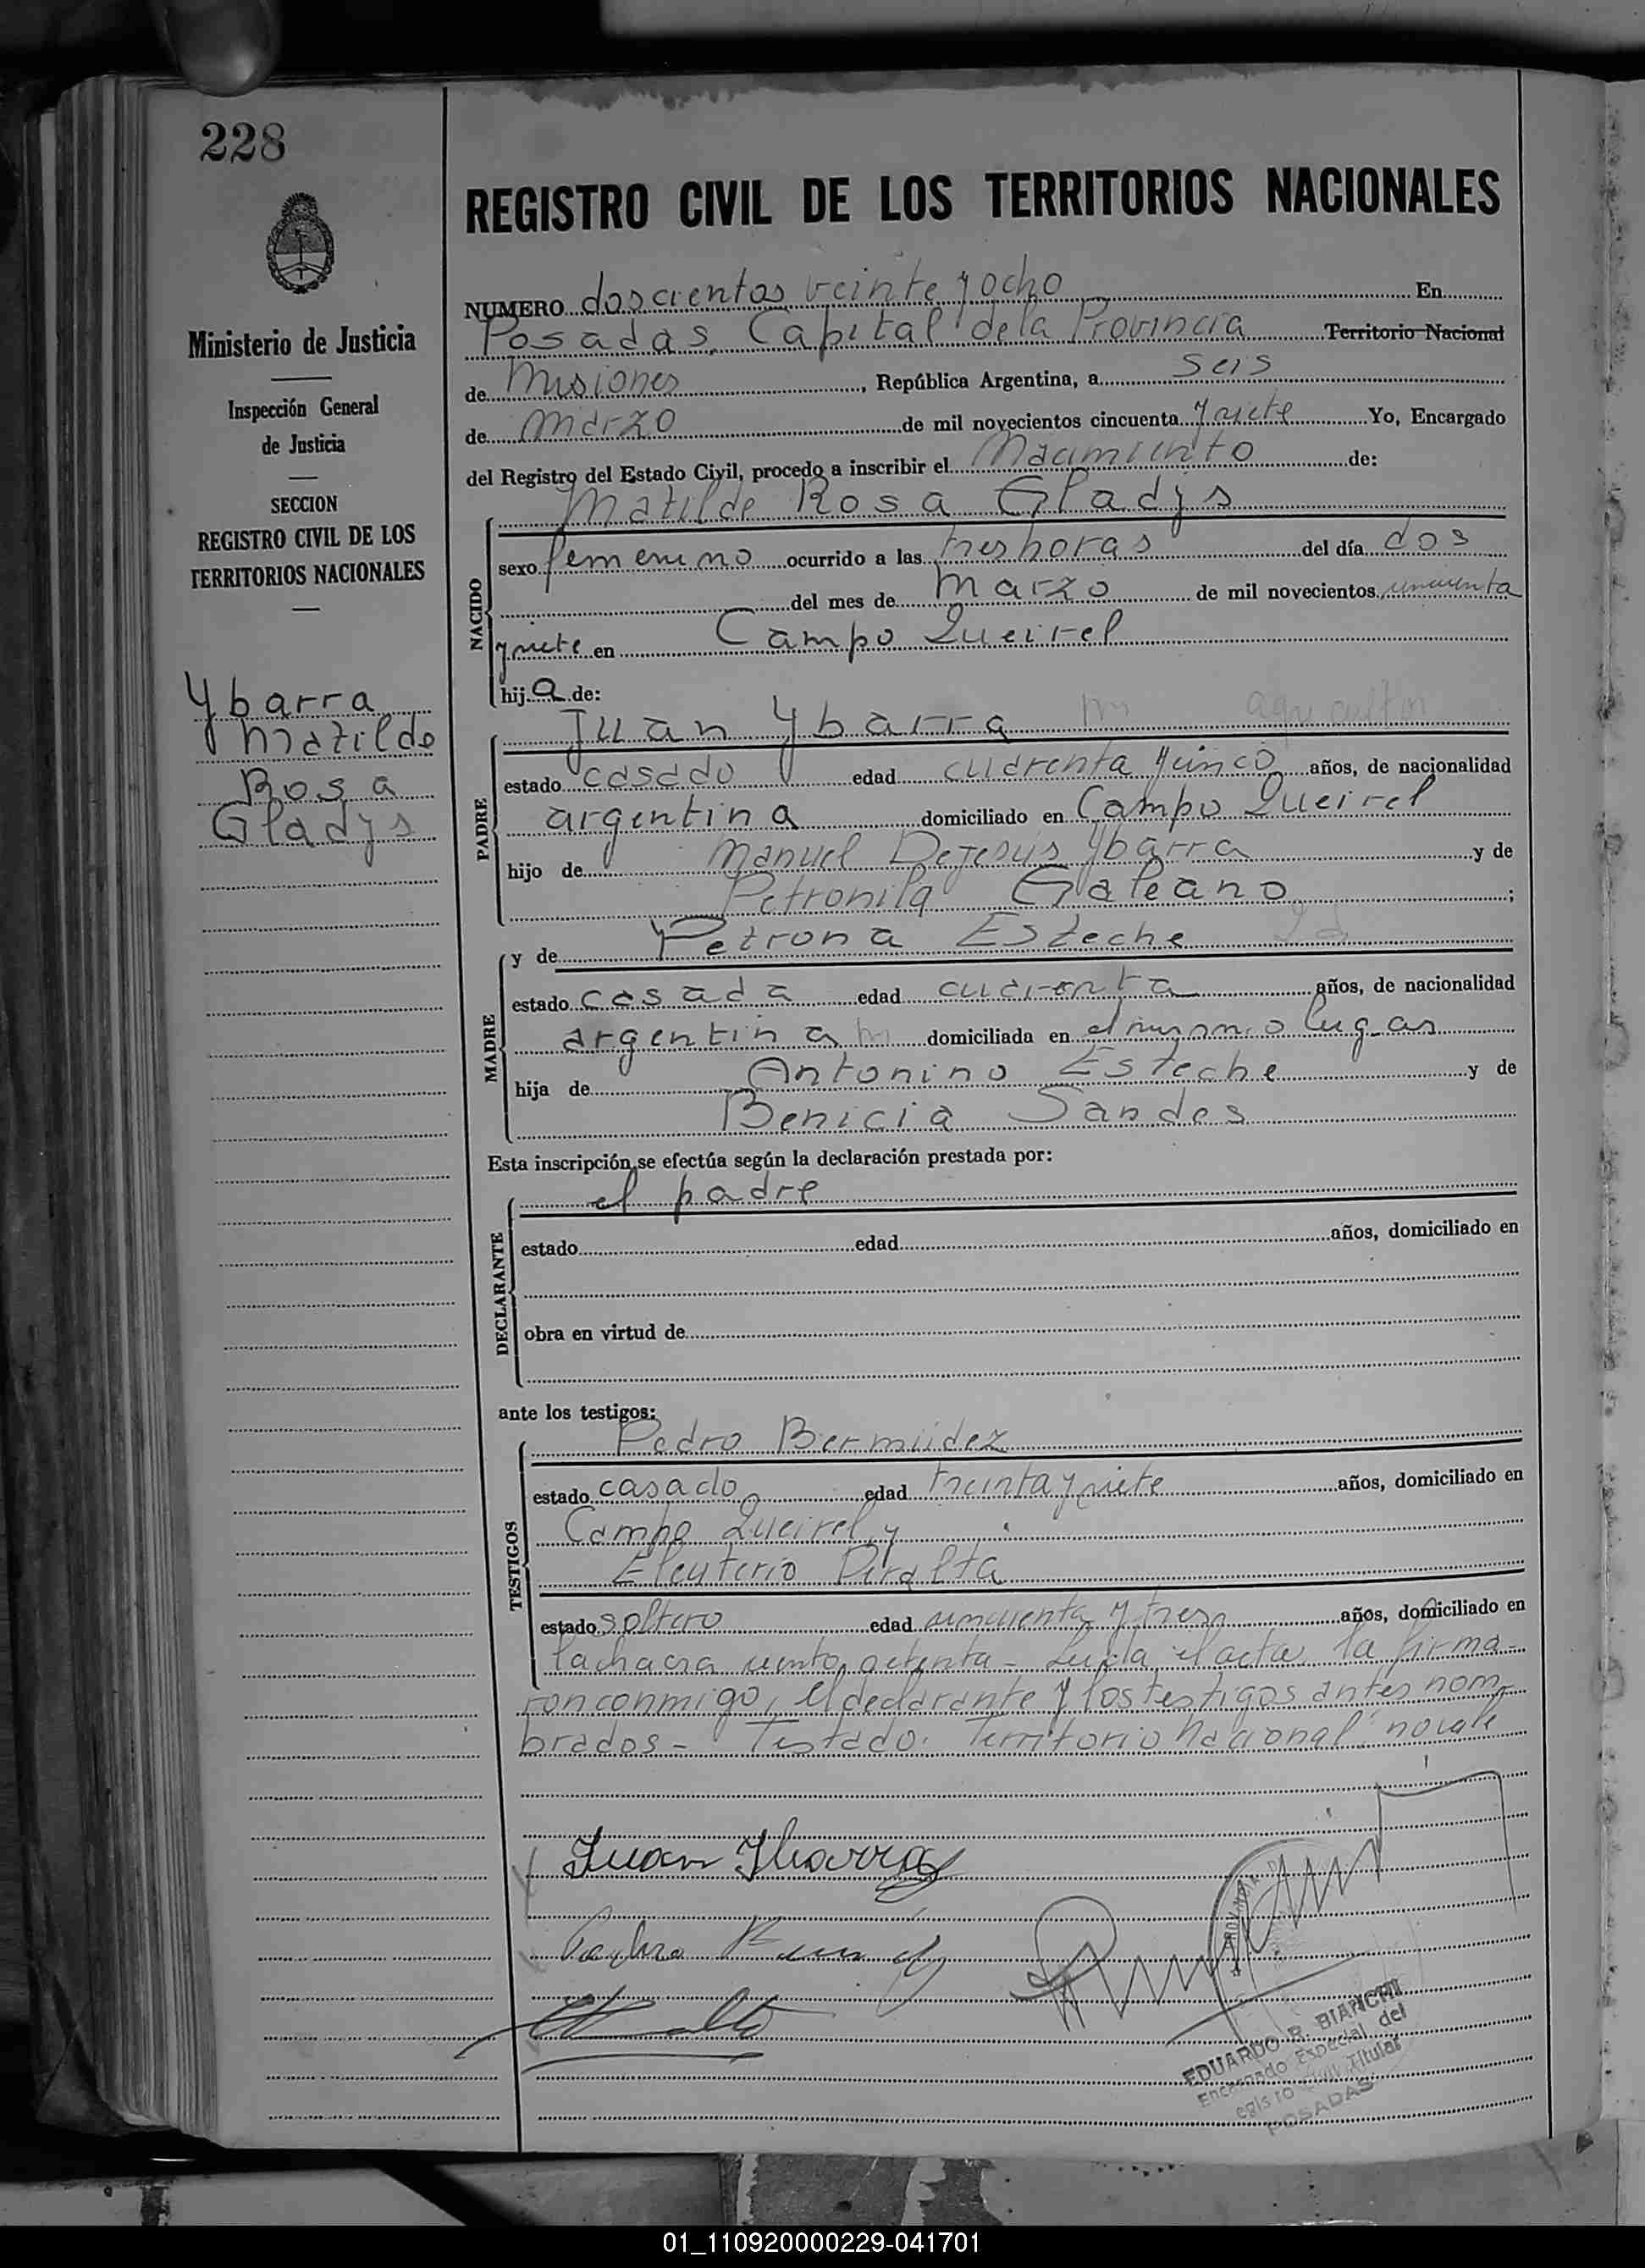 228
REGISTRO CIVIL DE LOS TERRITORIOS NACIONALES
Ministerio de Justicia
Inspección General
de Justicia
SECCION
REGISTRO CIVIL DE LOS
TERRITORIOS NACIONALES
Ybarra
Matilde
Rosa
Gladys
NUMERO doscientos veinte y ocho En
Posadas, Capital de la Provincia Territorio Nacional
de Misiones, República Argentina, a seis
de marzo de mil novecientos cincuenta y siete Yo, Encargado
del Registro del Estado Civil, procedo a inscribir el Nacimiento de:
Matilde Rosa Gladys
NACIDO
sexo femenino ocurrido a las tres horas del día dos
del mes de marzo de mil novecientos cincuenta
y siete en Campo Queirel
hij a de:
Juan Ybarra m agricultor
PADRE
estado casado edad cuarenta y cinco años, de nacionalidad
argentina domiciliado en Campo Queirel
hijo de Manuel DeJesús Ybarra y de
Petronila Galeano ;
MADRE
y de Petrona Esteche
estado casada edad cuarenta años, de nacionalidad
argentina m domiciliada en el mismo lugar
hija de Antonino Esteche y de
Benicia Sandes
Esta inscripción se efectúa según la declaración prestada por:
el padre
DECLARANTE
estado edad años, domiciliado en
obra en virtud de
ante los testigos:
Pedro Bermúdez
TESTIGOS
estado casado edad treinta y siete años, domiciliado en
Campo Queirel y
Eleuterio Peralta
estado soltero edad cincuenta y tres años, domiciliado en
la chacra ciento ochenta - Leída el acta, la firma-
ron conmigo, el declarante y los testigos antes nom-
brados - Testado: Territorio Nacional: no vale
Juan Ibarra
EDUARDO R. BIANCHI
Encargado Especial del
egistro Civil Titular
POSADAS
01_110920000229-041701